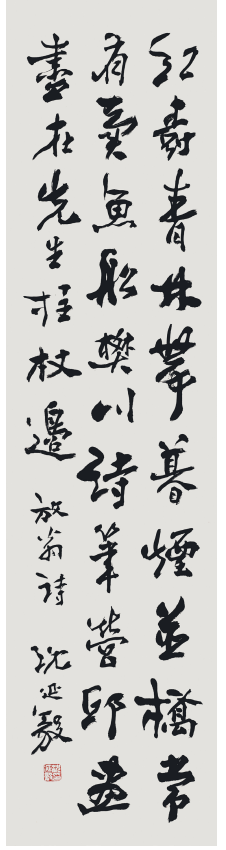 紅樹青林帶暮煙並橋常
有賣魚船樊川詩筆營邱畫
盡在先生拄杖邊 放翁詩 沈延毅